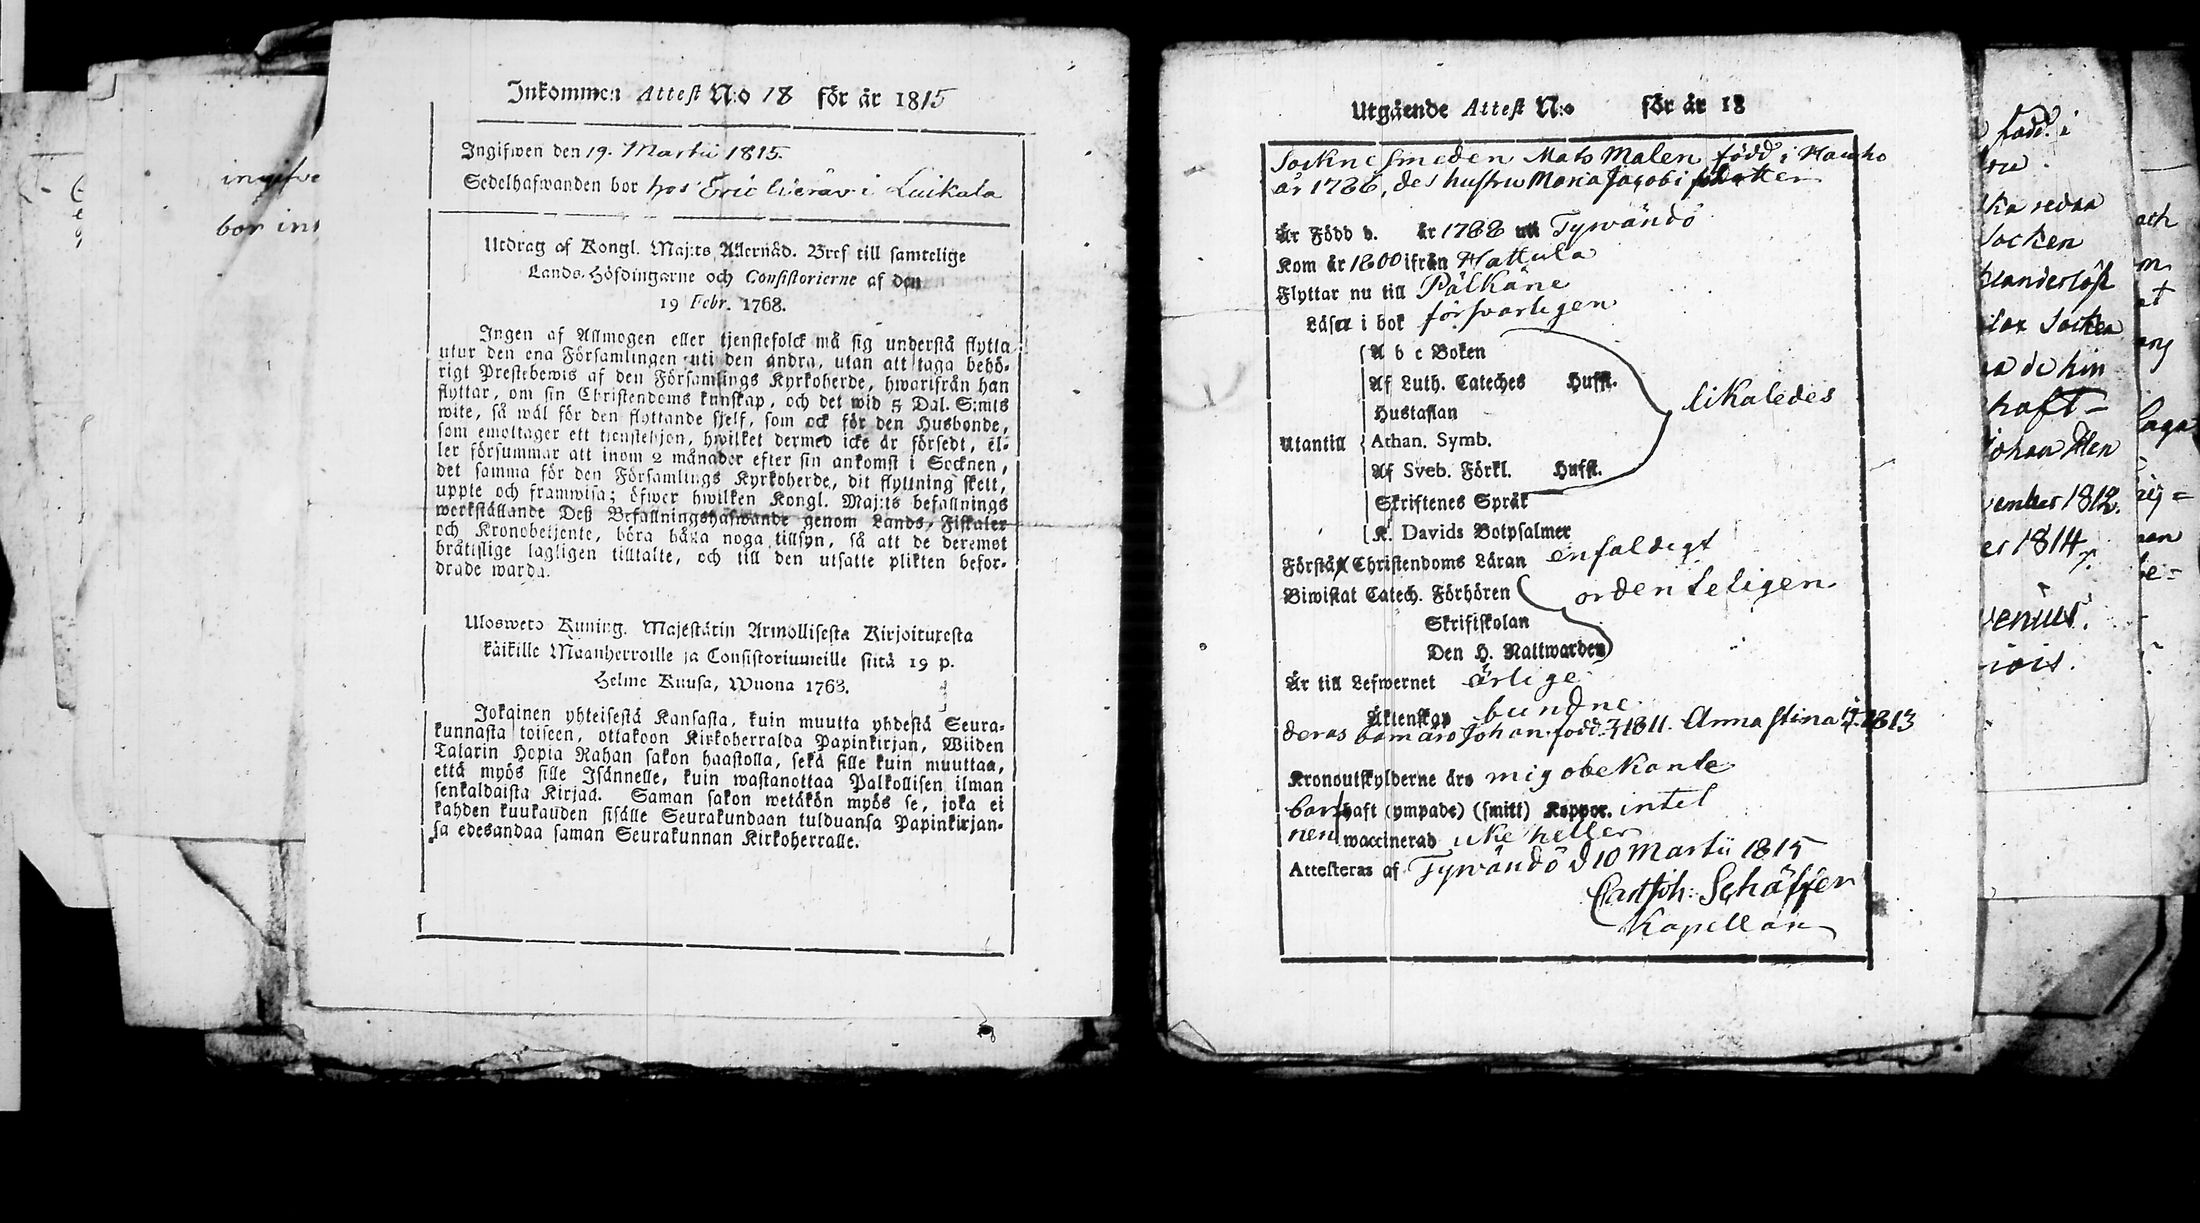 ingifve
bor ins
Inkommen Attest N:o 18 för år 1815
Ingifwen den 19. Martii 1815.
Sedelhafwanden bor hos Eric i Luikala
Utdrag af Kongl. Maj:ts Allernåd. Bref till samtelige
Lands-Höfdingarne och Consistorierne af den
19 Febr. 1768.
Ingen af Allmogen eller tjenstefolck må sig understå flytta
utur den ena Församlingen uti den andra, utan att taga behö-
rigt Prestebewis af den Församlings Kyrkoherde, hwarifrån han
flyttar, om sin Christendoms kunskap, och det wid 5 Dal. S:mts
wite, så wäl för den flyttande sjelf, som ock för den Husbonde,
som emottager ett tjenstehjon, hwilket dermed icke är försedt, el-
ler försummar att inom 2 månader efter sin ankomst i Socknen,
det samma för den Församlings Kyrkoherde, dit flyttning skett,
uppte och framwisa; öfwer hwilken Kongl. Maj:ts befallnings
werkställande Deß Befallningshafwande genom Lands-Fiskaler
och Kronobetjente, böra hålla noga tillsyn, så att de deremot
bråtislige lagligen tilltalte, och till den utsatte plikten befor-
drade warda.
Ulosweto Kuning. Majestätin Armollisesta Kirjoituxesta
kaikille Maanherroille ja Consistoriumeille siitä 19 p.
Helme Kuusa, Wuona 1763.
Jokainen yhteisestä Kansasta, kuin muutta yhdestä Seura-
kunnasta toiseen, ottakoon Kirkoherralda Papinkirjan, Wiiden
Talarin Hopia Rahan sakon haastolla, sekä sille kuin muuttaa,
että myös sille Isännelle, kuin wastanottaa Palkollisen ilman
senkaldaista Kirjaa. Saman sakon wetäkön myös se, joka ei
kahden kuukauden sisälle Seurakundaan tulduansa Papinkirjan-
sa edesandaa saman Seurakunnan Kirkoherralle.
Utgående Attest N:o för år 18
Sockne Smeden Mats Malen född i Hauho
år 1786, des hustru Maria Jacobi dotter
Är Född d. år 1788 uti Tyrwändö
Kom år 1800 ifrån Hattula
Flyttar nu till Pälkäne
Läser i bok försvarligen
A b c Boken
Af Luth. Cateches Hufst.
Hustaflan
likaledes
Utantill Athan. Symb.
Af Sveb. Förkl. Hufst.
Skriftenes Språk
K. Davids Botpsalmer
Förstå Christendoms Läran enfaldigt
Biwistat Catech. Förhören ordenteligen
Skriftskolan
Den H. Nattwarden
Är till Lefwernet ärlige
Äktenskap bundne
deras barn äro Johan född 1811. Anna Stina 1813
Kronoutskylderne äro mig obekante
barnen haft (ympade) (smitt) Koppor. intet
waccinerad icke heller
Attesteras af Tyrwändö d 10 Martii 1815
Schäffer
Kapellan
född i
Socken
Johan Hen
vember 1812.
1814